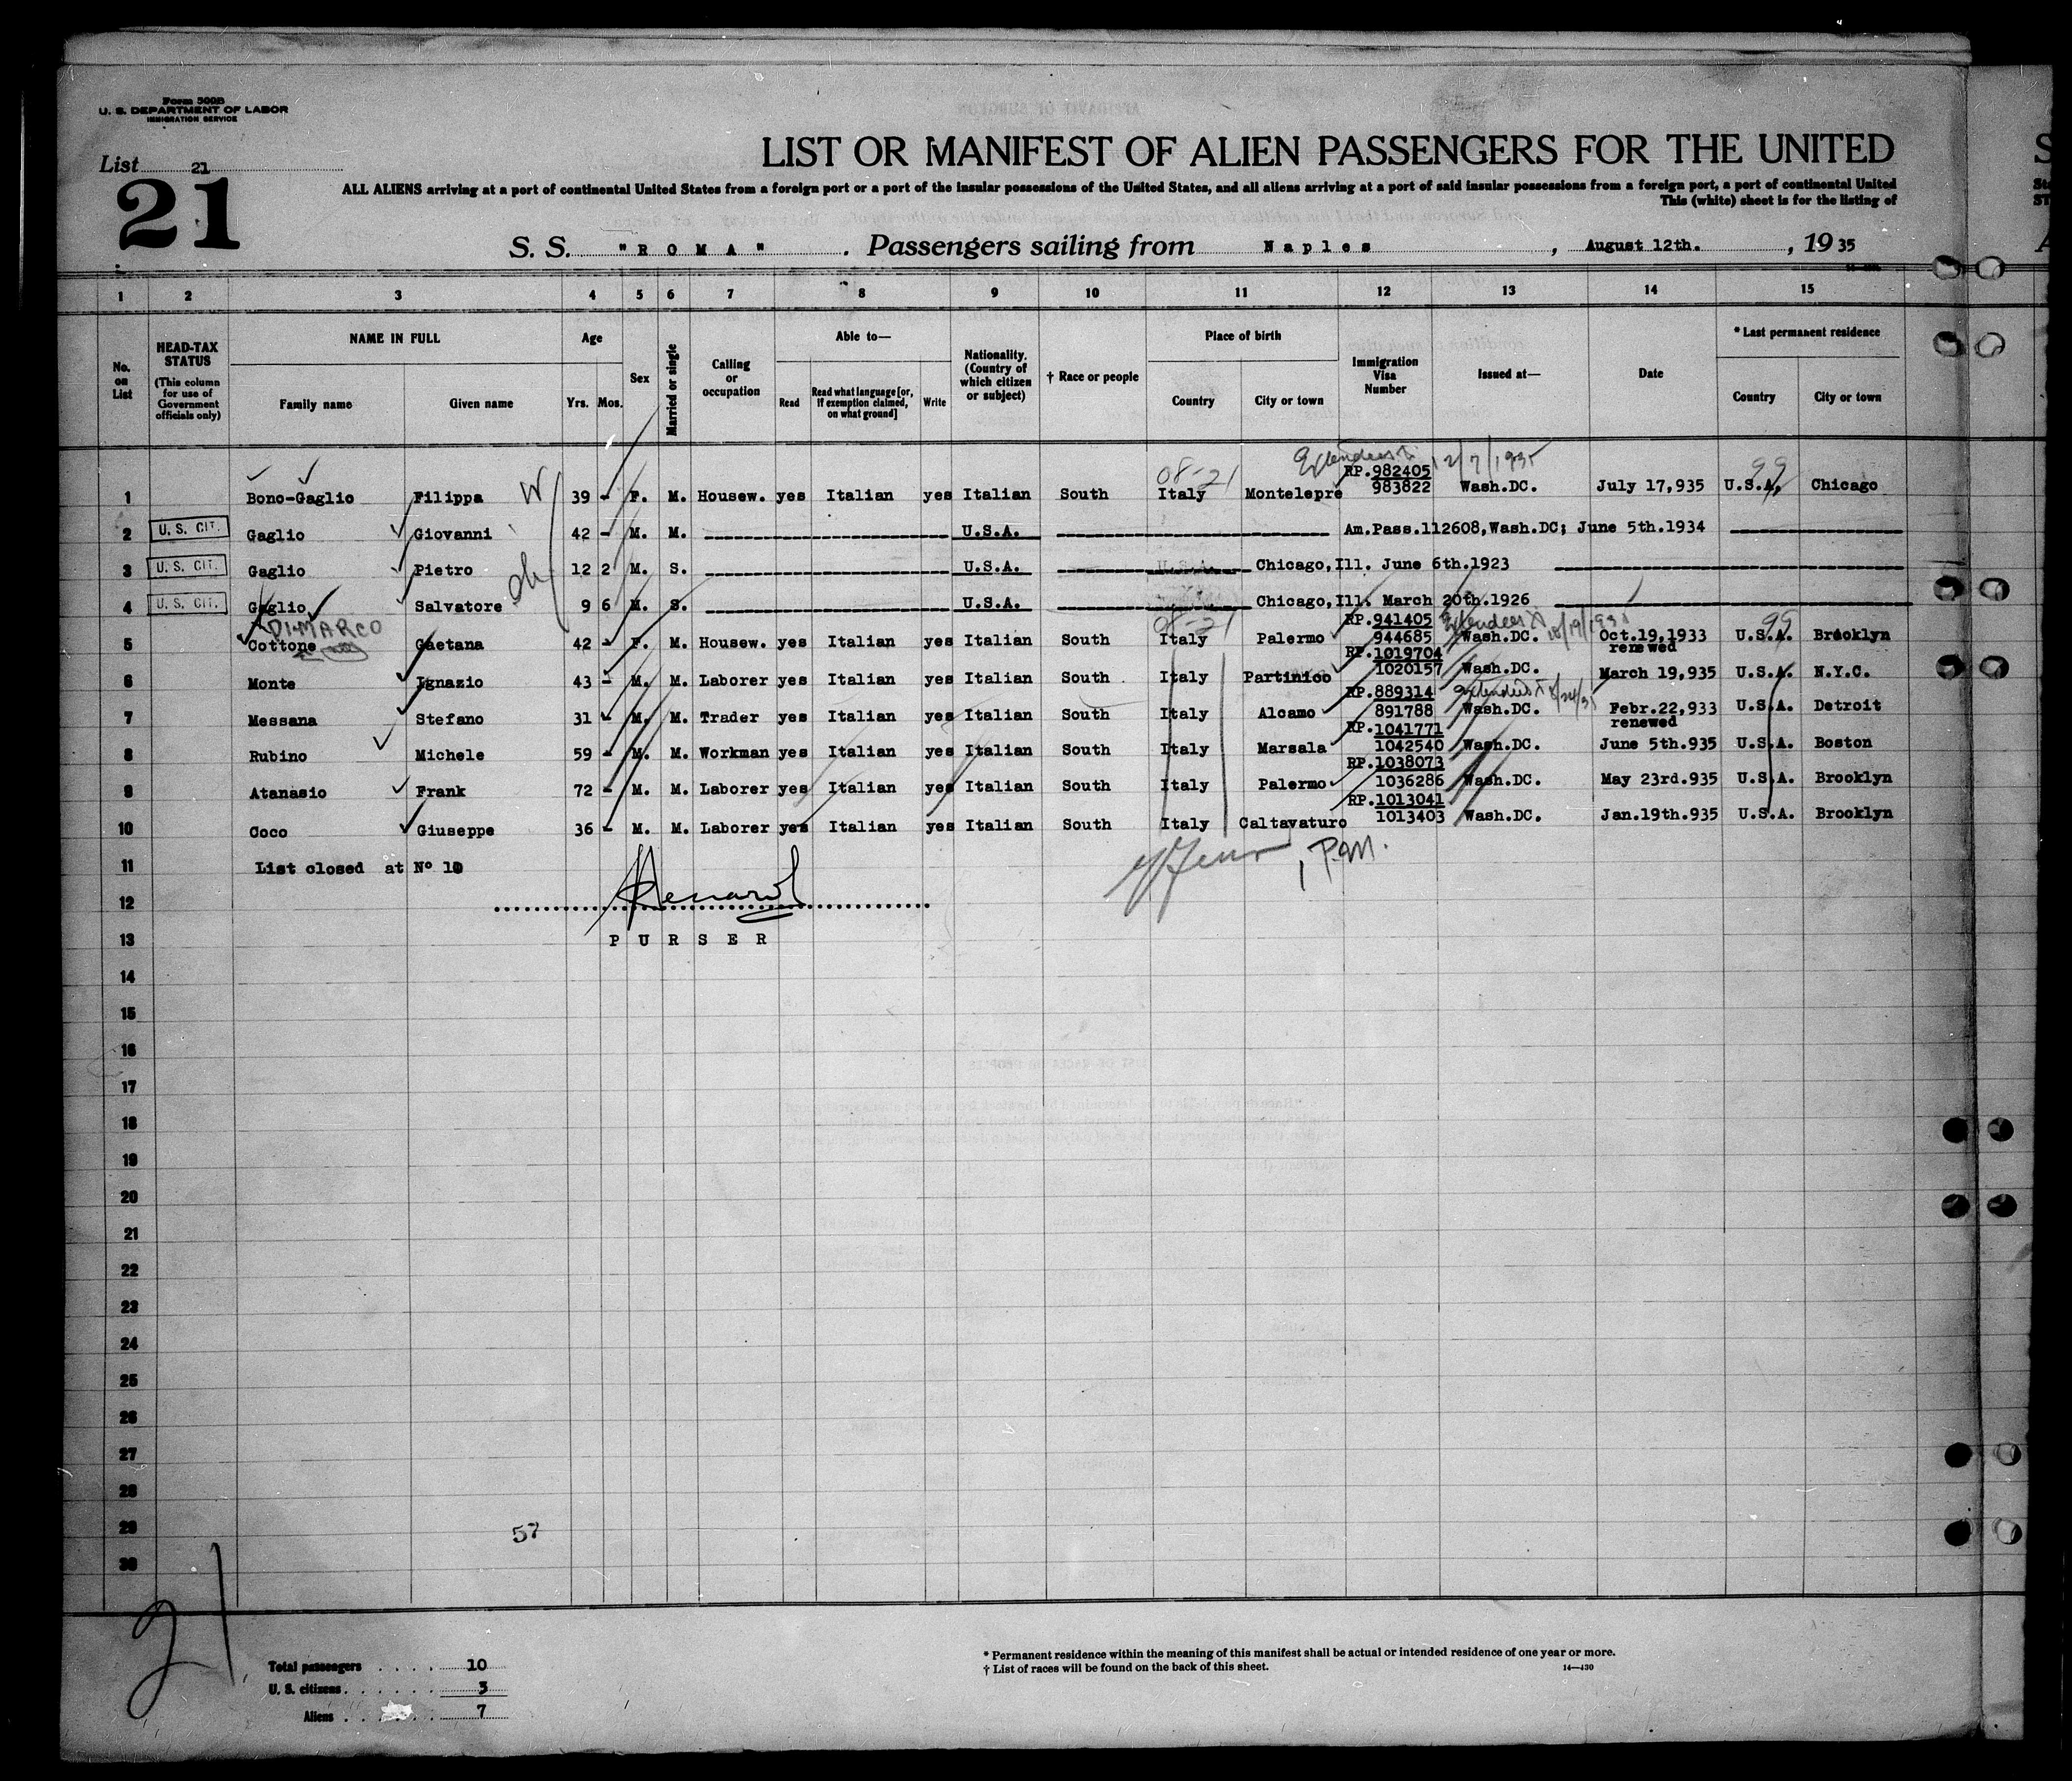 Form 500B
U. S. DEPARTMENT OF LABOR
IMMIGRATION SERVICE
List 21
21
LIST OR MANIFEST OF ALIEN PASSENGERS FOR THE UNITED
ALL ALIENS arriving at a port of continental United States from a foreign port or a port of the insular possessions of the United States, and all aliens arriving at a port of said insular possessions from a foreign port, a port of continental United
This (white) sheet is for the listing of
S. S. "ROMA". Passengers sailing from Naples, August 12th., 1935
1 2 3 4 5 6 7 8 9 10 11 12 13 14 15
No. on List
HEAD-TAX STATUS (This column for use of Government officials only)
NAME IN FULL
Family name Given name
Age
Yrs. Mos.
Sex
Married or single
Calling or occupation
Able to—
Read Read what language [or, if exemption claimed, on what ground] Write
Nationality. (Country of which citizen or subject)
† Race or people
Place of birth
Country City or town
Immigration Visa Number
Issued at—
Date
* Last permanent residence
Country City or town
08-21 RP.982405 12/7/1935 99
1 Bono-Gaglio Filippa W 39 - F. M. Housew. yes Italian yes Italian South Italy Montelepre 983822 Wash.DC. July 17,935 U.S.A, Chicago
2 U. S. CIT. Gaglio Giovanni 42 - M. M. U.S.A. Am.Pass.112608,Wash.DC; June 5th.1934
3 U. S. CIT. Gaglio Pietro 12 2 M. S. U.S.A. U.S.A. Chicago,Ill. June 6th.1923
4 U. S. CIT. Gaglio Salvatore ch 9 6 M. S. U.S.A. Chicago,Ill. March 20th.1926
DI-MARCO 08-21 RP.941405 99
5 Cottone Gaetana 42 - F. M. Housew. yes Italian yes Italian South Italy Palermo 944685 Wash.DC. Oct.19,1933 renewed U.S.A. Brooklyn
RP.1019704
6 Monte Ignazio 43 - M. M. Laborer yes Italian yes Italian South Italy Partinico 1020157 Wash.DC. March 19,935 U.S.A. N.Y.C.
RP.889314
7 Messana Stefano 31 - M. M. Trader yes Italian yes Italian South Italy Alcamo 891788 Wash.DC. Febr.22,933 renewed U.S.A. Detroit
RP.1041771
8 Rubino Michele 59 - M. M. Workman yes Italian yes Italian South Italy Marsala 1042540 Wash.DC. June 5th.935 U.S.A. Boston
RP.1038073
9 Atanasio Frank 72 - M. M. Laborer yes Italian yes Italian South Italy Palermo 1036286 Wash.DC. May 23rd.935 U.S.A. Brooklyn
RP.1013041
10 Coco Giuseppe 36 - M. M. Laborer yes Italian yes Italian South Italy Caltavaturo 1013403 Wash.DC. Jan.19th.935 U.S.A. Brooklyn
11 List closed at Nº 10
12
13 PURSER
14
15
16
17
18
19
20
21
22
23
24
25
26
27
28
29 57
30
21
Total passengers 10
U. S. citizens 3
Aliens 7
* Permanent residence within the meaning of this manifest shall be actual or intended residence of one year or more.
† List of races will be found on the back of this sheet. 14—430